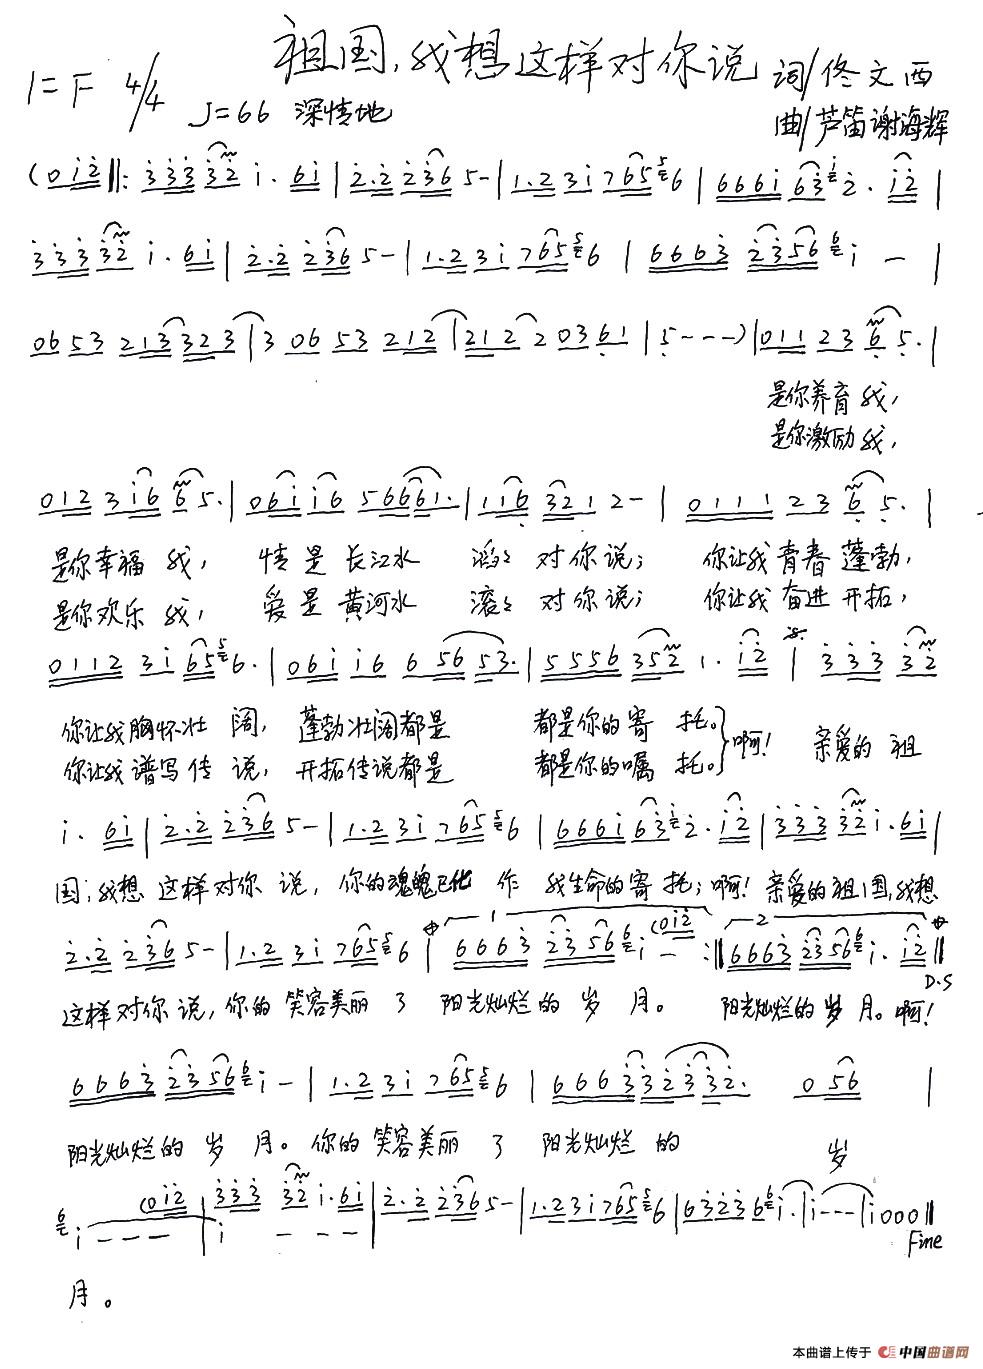 祖国,我想这样对你说
1=F 4/4 ♩=66 深情地
词/佟文西
曲/芦笛谢海辉
(0 i 2 ‖: 3 3 3 3 2 i · 6 i | 2 · 2 2 3 6 5 - | 1 · 2 3 i 7 6 5 6 | 6 6 6 i 6 3 2 · i 2 |
3 3 3 3 2 i · 6 i | 2 · 2 2 3 6 5 - | 1 · 2 3 i 7 6 5 6 | 6 6 6 3 2 3 5 6 i - |
0 6 5 3 2 1 3 3 2 3 | 3 0 6 5 3 2 1 2 | 2 1 2 2 0 3 6 1 | 5 - - - ) | 0 1 1 2 3 6 5 · |
是你养育我,
是你激励我,
0 1 2 3 i 6 6 5 · | 0 6 i i 6 5 6 6 6 1 · | 1 i 6 3 2 1 2 - | 0 1 1 1 2 3 6 5 · |
是你幸福我, 情是长江水 滔々对你说; 你让我青春蓬勃,
是你欢乐我, 爱是黄河水 滚々对你说; 你让我奋进开拓,
0 1 1 2 3 i 6 5 6 · | 0 6 i i 6 6 5 6 5 3 · | 5 5 5 6 3 5 2 1 · i 2 | 3 3 3 3 2
你让我胸怀壮阔, 蓬勃壮阔都是 都是你的寄托。 啊! 亲爱的祖
你让我谱写传说, 开拓传说都是 都是你的嘱托。
i · 6 i | 2 · 2 2 3 6 5 - | 1 · 2 3 i 7 6 5 6 | 6 6 6 i 6 3 2 · i 2 | 3 3 3 3 2 i · 6 i |
国;我想这样对你说, 你的魂魄已化作我生命的寄托;啊!亲爱的祖国,我想
2 · 2 2 3 6 5 - | 1 · 2 3 i 7 6 5 6 | 1 6 6 6 3 2 3 5 6 i - (0 i 2 :‖ 2 6 6 6 3 2 3 5 6 i · i 2 ‖
D.S
这样对你说,你的笑容美丽了阳光灿烂的岁月。 阳光灿烂的岁月。啊!
6 6 6 3 2 3 5 6 i - | 1 · 2 3 i 7 6 5 6 | 6 6 6 3 3 2 3 3 2 · 0 5 6 |
阳光灿烂的岁月。你的笑容美丽了阳光灿烂的 岁
i - - - (0 i 2 | 3 3 3 3 2 i · 6 i | 2 · 2 2 3 6 5 - | 1 · 2 3 i 7 6 5 6 | 6 3 2 3 6 i · | i - - - | i 0 0 0 ‖
i - - -
Fine
月。
本曲谱上传于 中国曲谱网